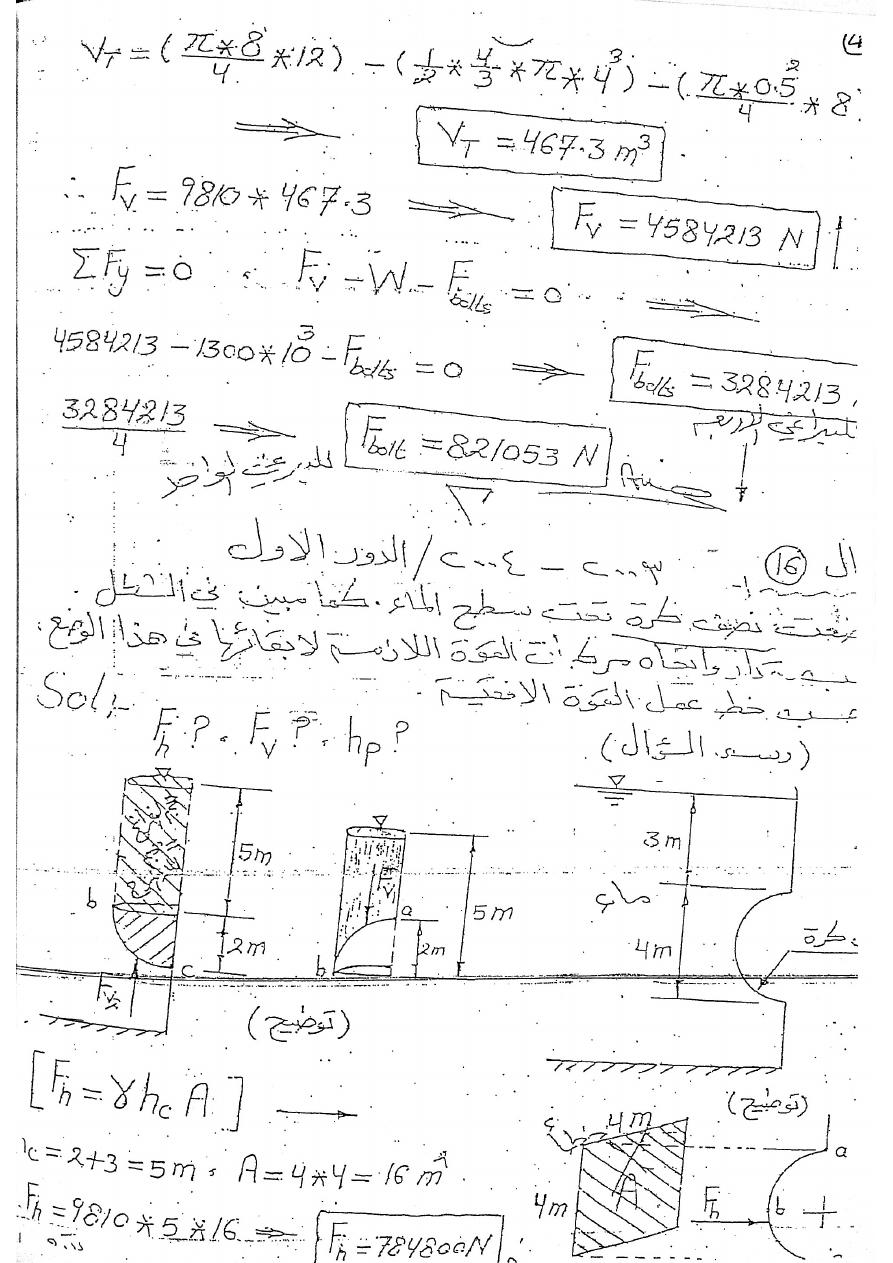 (4
V_T = (π*8/4 *12) - (1/2 * 4/3 * π * 4³) - (π*0.5²/4 * 8
⟹ V_T = 467.3 m³
∴ F_v = 9810 * 467.3 ⟹ F_v = 4584213 N ↑
ΣFy = 0 , F_v - W - F_bolts = 0 ⟹
4584213 - 1300*10³ - F_bolts = 0 ⟹ F_bolts = 3284213
للبراغي الاربعة
3284213/4 ⟹ F_bolt = 821053 N Ans
للبرغي الواحد
ال (16) ٢٠٠٣ - ٢٠٠٤ / الدور الاول
نصف كرة تحت سطح الماء. كما مبين في الشكل.
مقدار واتجاه مركبات القوة اللازمة لابقائها في هذا الوضع.
خط عمل القوة الافقية.
Sol:-
F_h ? , F_v ? , h_p ?
(رسم السؤال)
5m
b
2m
c
F_v2
F_v
a
5m
2m
b
(توضيح)
3m
ماء
4m
كرة
[F_h = γ h_c A] →
(توضيح)
4m
4m
A
F_h
a
b
h_c = 2+3 = 5m , A = 4*4 = 16 m²
F_h = 9810 * 5 * 16 ⟹ F_h = 784800N